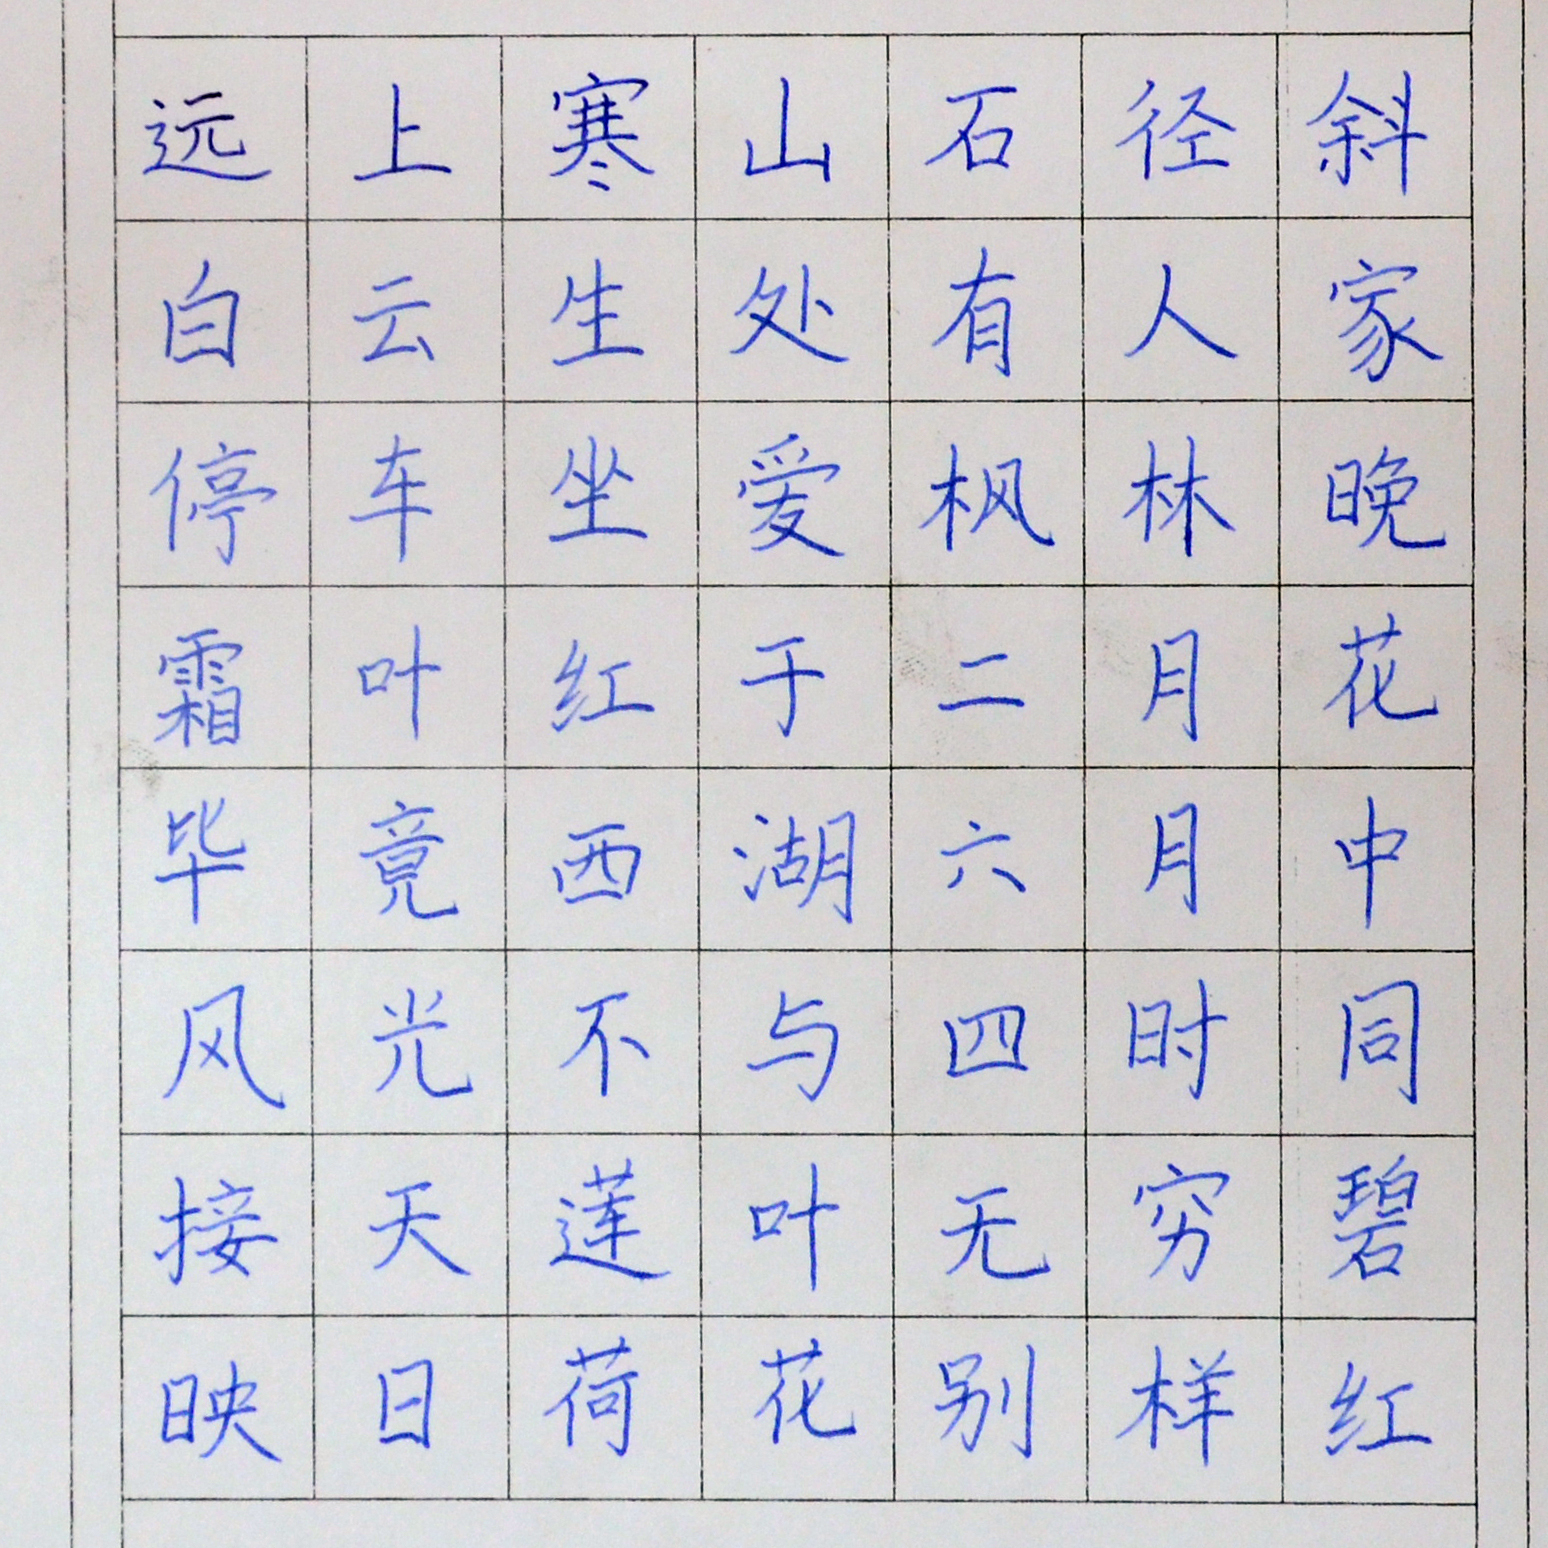 远上寒山石径斜
白云生处有人家
停车坐爱枫林晚
霜叶红于二月花
毕竟西湖六月中
风光不与四时同
接天莲叶无穷碧
映日荷花别样红